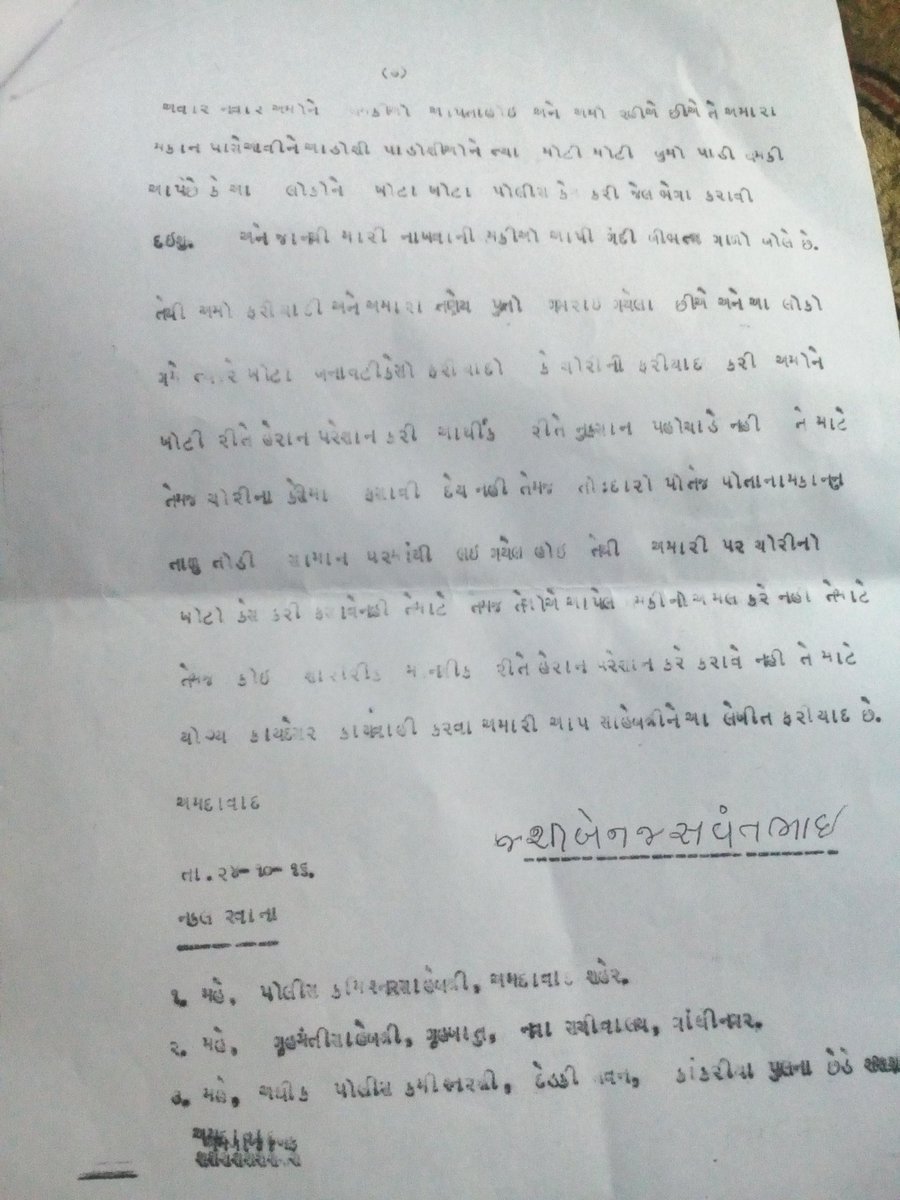 (૭)
અવાર નવાર અમોને ધમકીઓ આપતા હોઇ અને અમો રહીએ છીએ તે અમારા
મકાન પાસેઆવીને આડોશી પાડોશીઓને ત્યા મોટી મોટી બુમો પાડી ધમકી
આપેછે કે આ લોકોને ખોટા ખોટા પોલીસ કેસ કરી જેલ ભેગા કરાવી
દઇશુ. અને જાનથી મારી નાખવાની ધમકીઓ આપી ગંદી બીભત્સ ગાળો બોલે છે.
તેથી અમો ફરીયાદી અને અમારા ત્રણેય પુત્રો ગભરાઇ ગયેલા છીએ અને આ લોકો
ગમે ત્યારે ખોટા બનાવટીકેસો ફરીયાદો કે ચોરીની ફરીયાદ કરી અમોને
ખોટી રીતે હેરાન પરેશાન કરી આર્થીક રીતે નુકશાન પહોચાડે નહી તે માટે
તેમજ ચોરીના કેસમા ફસાવી દેય નહી તેમજ પોતેજ પોતાનામકાનનુ
તાળુ તોડી સામાન ઘરમાંથી લઇ ગયેલ હોઇ તેથી અમારી પર ચોરીનો
ખોટો કેસ કરી ફસાવેનહી તેમાટે તેમજ તેઓએ આપેલ ધમકીનો અમલ કરે નહી તેમાટે
તેમજ કોઇ શારીરીક માનસીક રીતે હેરાન પરેશાન કરે કરાવે નહી તે માટે
યોગ્ય કાયદેસર કાર્યવાહી કરવા અમારી આપ સાહેબશ્રીને આ લેખીત ફરીયાદ છે.
અમદાવાદ
જશીબેન જસવંતભાઇ
તા. ૨૪-૧૦-૧૬.
નકલ રવાના
૧. મહે. પોલીસ કમિશ્નરસાહેબશ્રી, અમદાવાદ શહેર.
૨. મહે, ગૃહમંત્રીસાહેબશ્રી, ગૃહખાતુ, નવા સચીવાલય, ગાંધીનગર.
૩. મહે, અધીક પોલીસ કમીશ્નરશ્રી, દેડકી ભવન, કાંકરીયા પુલના છેડે